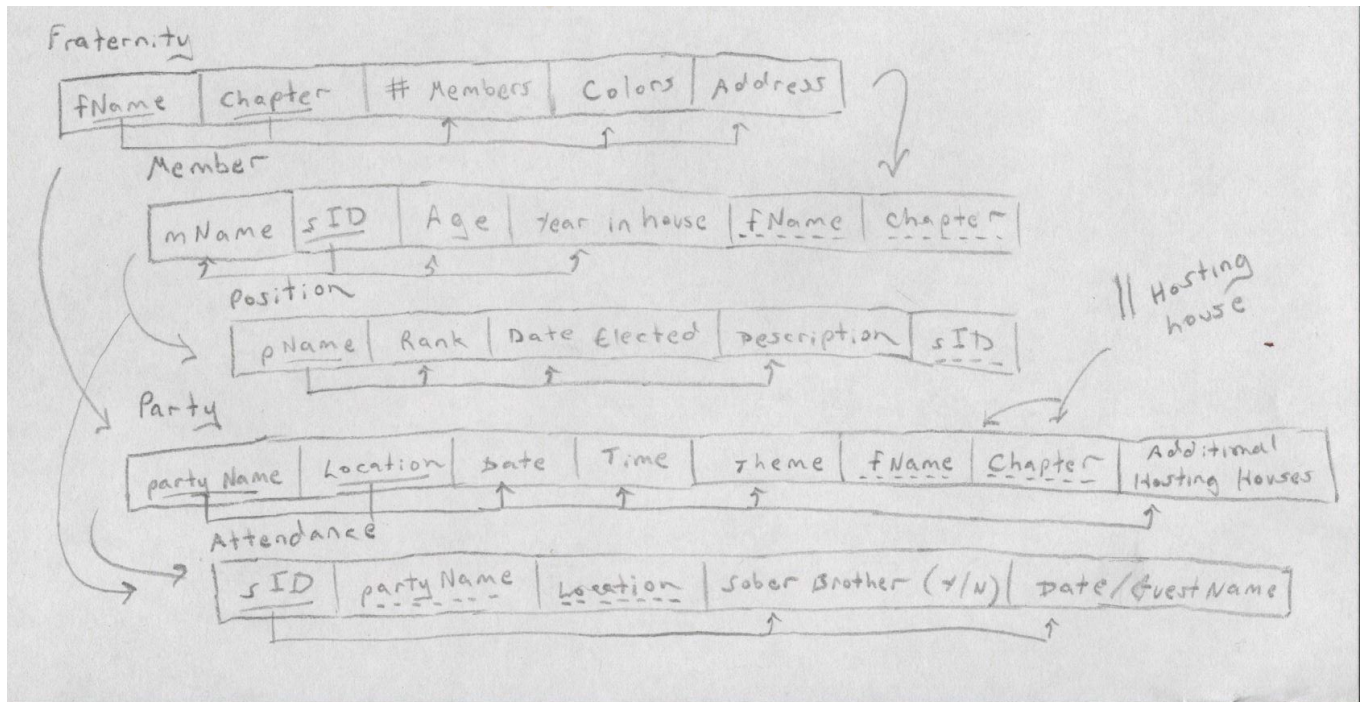 Fraternity
fName Chapter # Members Colors Address
Member
mName sID Age Year in house fName Chapter
Position
pName Rank Date Elected Description sID
|| Hosting
house
Party
party Name Location Date Time Theme fName Chapter Additional
Hosting Houses
Attendance
sID partyName Location Sober Brother (Y/N) Date/Guest Name